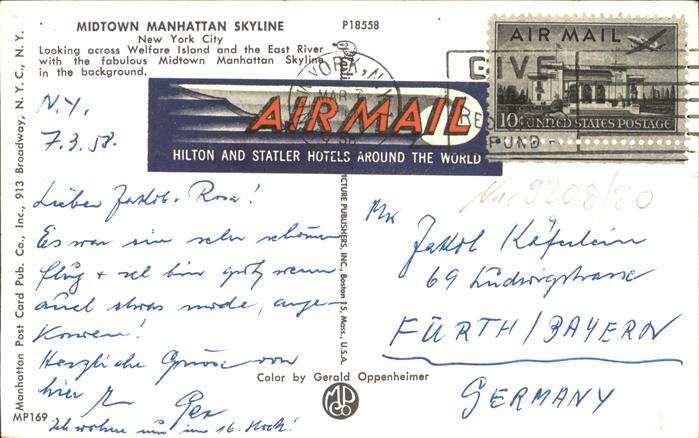 MIDTOWN MANHATTAN SKYLINE
New York City
Looking across Welfare Island and the East River
with the fabulous Midtown Manhattan Skyline
in the background.
P18558
AIR MAIL
10¢ UNITED STATES POSTAGE
GIVE
FUND
MAR 7
AIR MAIL
HILTON AND STATLER HOTELS AROUND THE WORLD
N.Y.
7.3.58.
Lieber Jakob + Rosa!
Es war ein sehr schöner
Flug + ich bin gut, wenn
auch etwas müde, ange-
kommen!
Herzliche Grüsse von
hier
Ich wohne im 16. Stock!
Jakob Käferlein
69 Ludwigstrasse
FÜRTH/BAYERN
GERMANY
9208/20
Color by Gerald Oppenheimer
MP
CO
MP169
Manhattan Post Card Pub. Co., Inc., 913 Broadway, N.Y.C., N.Y.
PICTURE PUBLISHERS, INC., Boston 15, Mass., U.S.A.